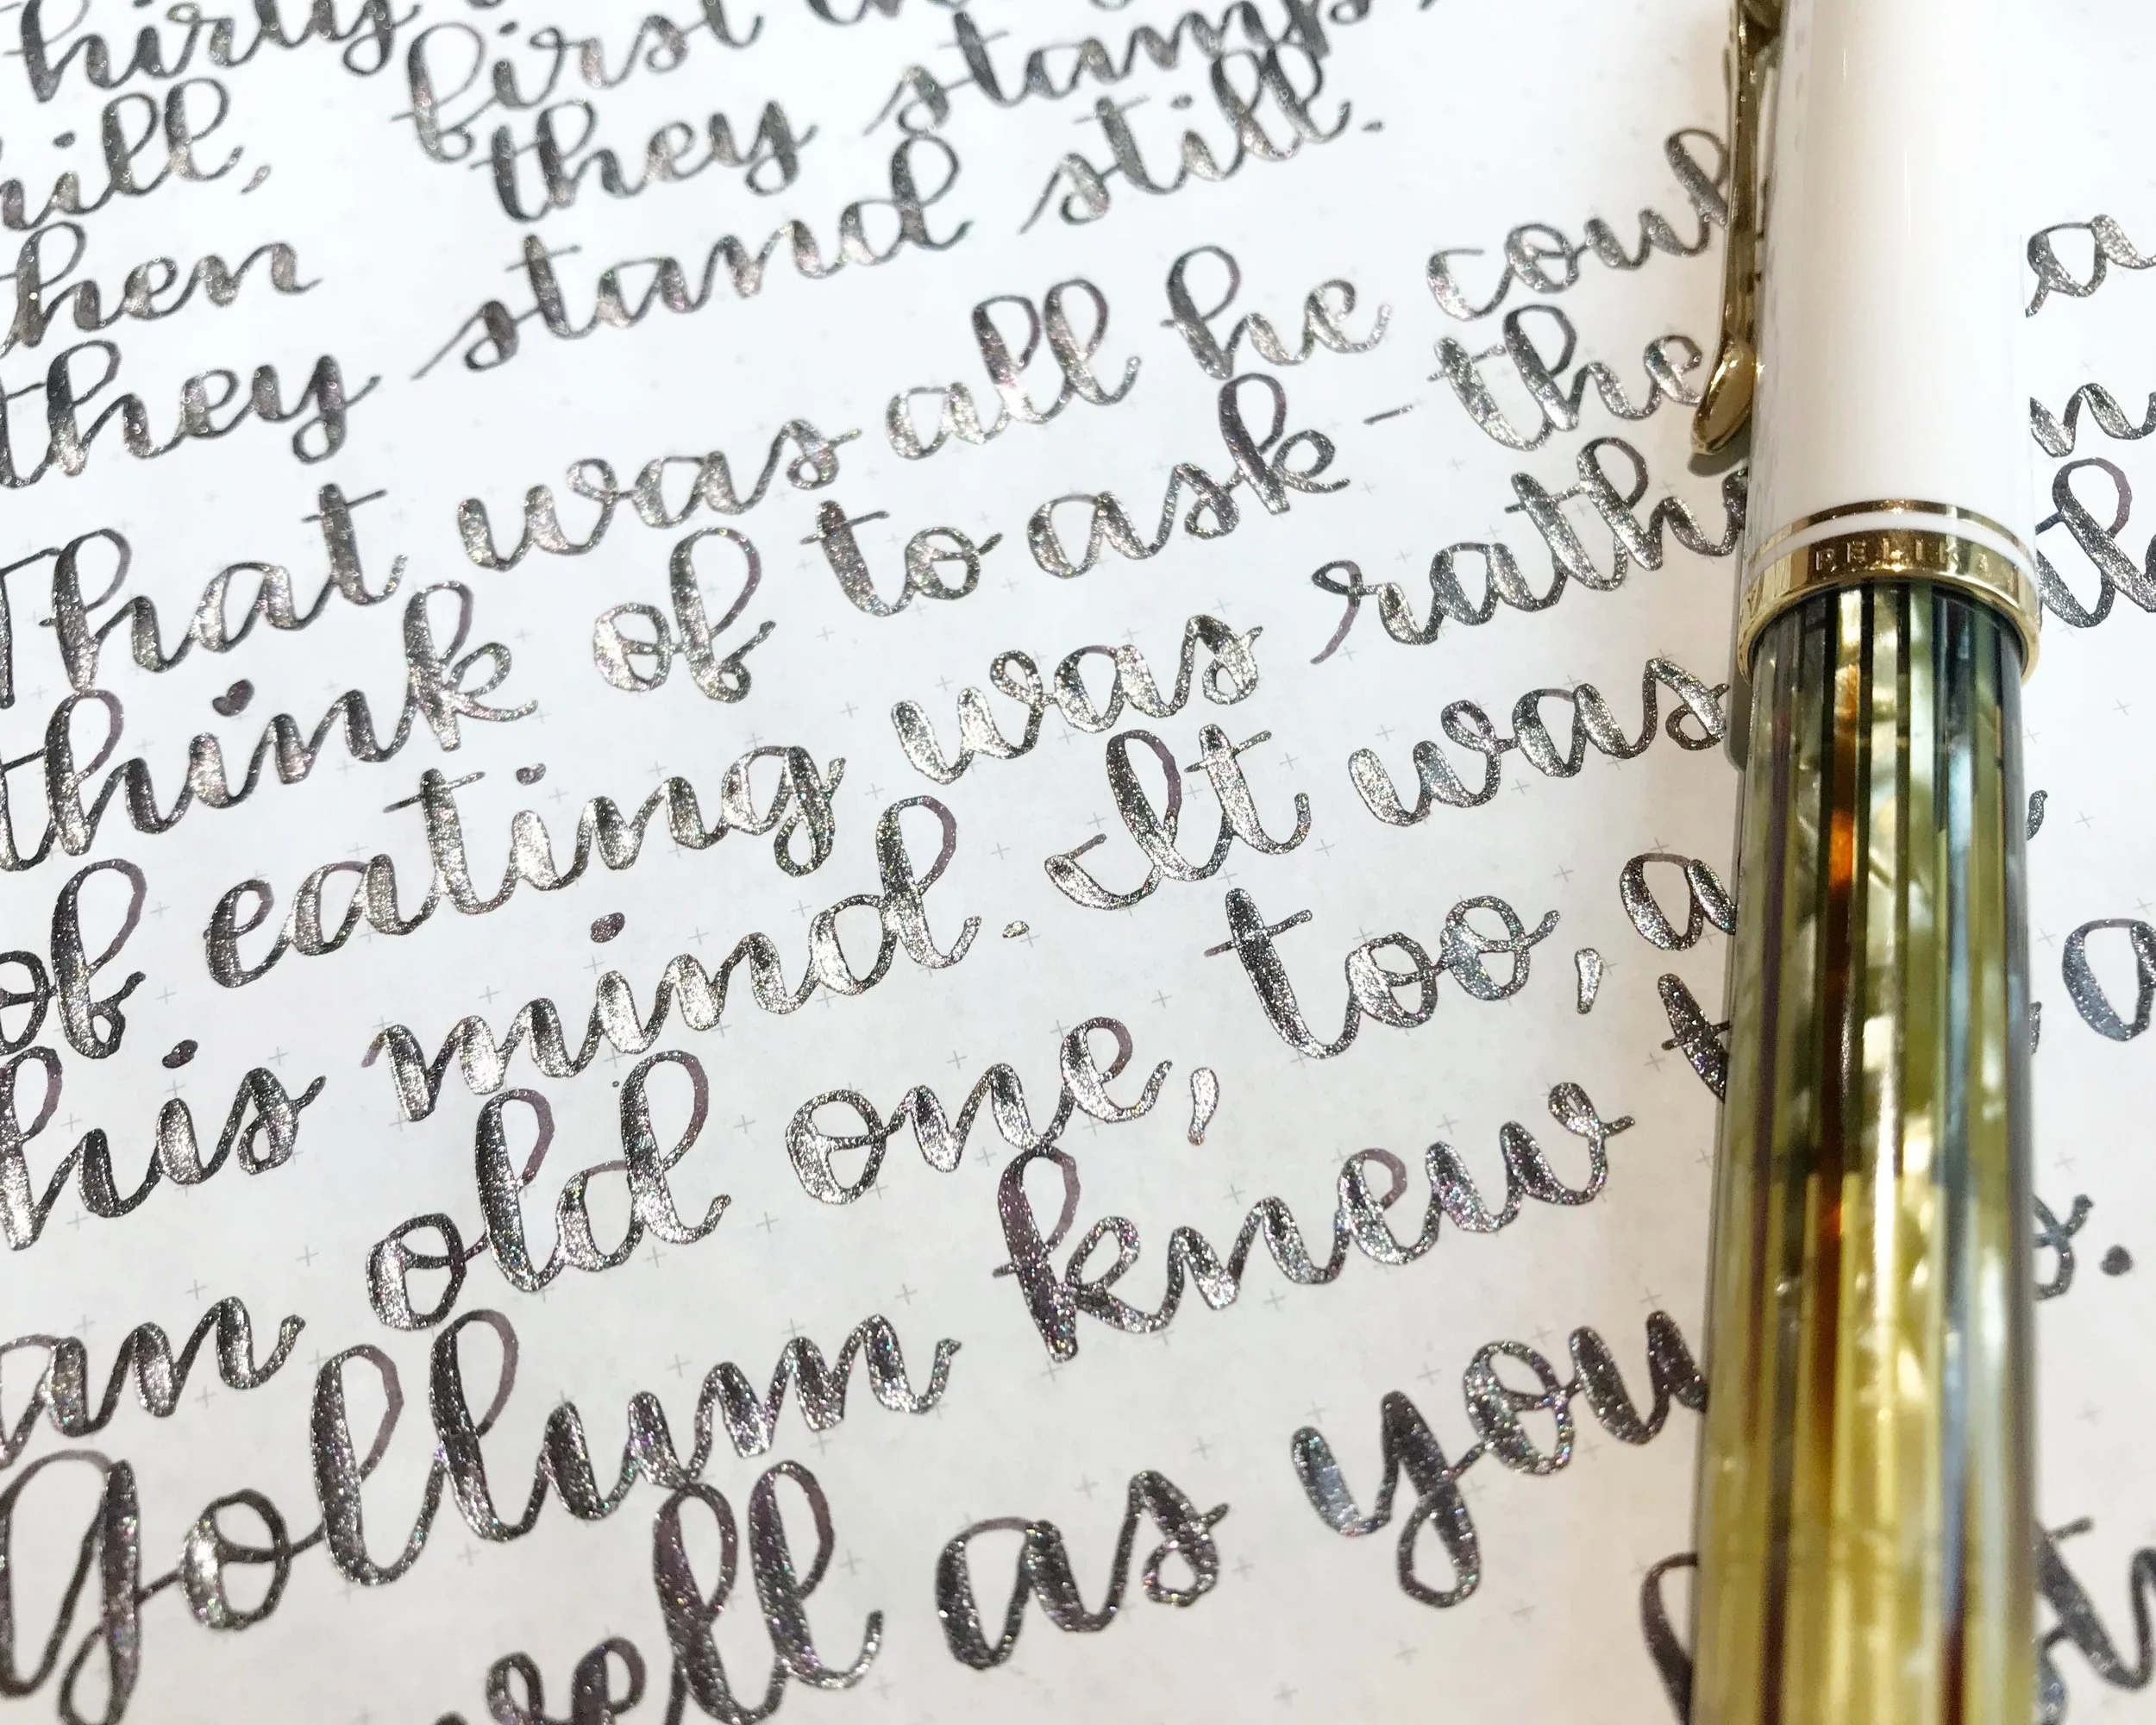 hirty first
hill, they stamp,
then stand still.
they
That was all he coul a
think of to ask - the n
of eating was rathe
his mind. It was
an old one, too, a a
Gollum knew
well as you
PELIKAN